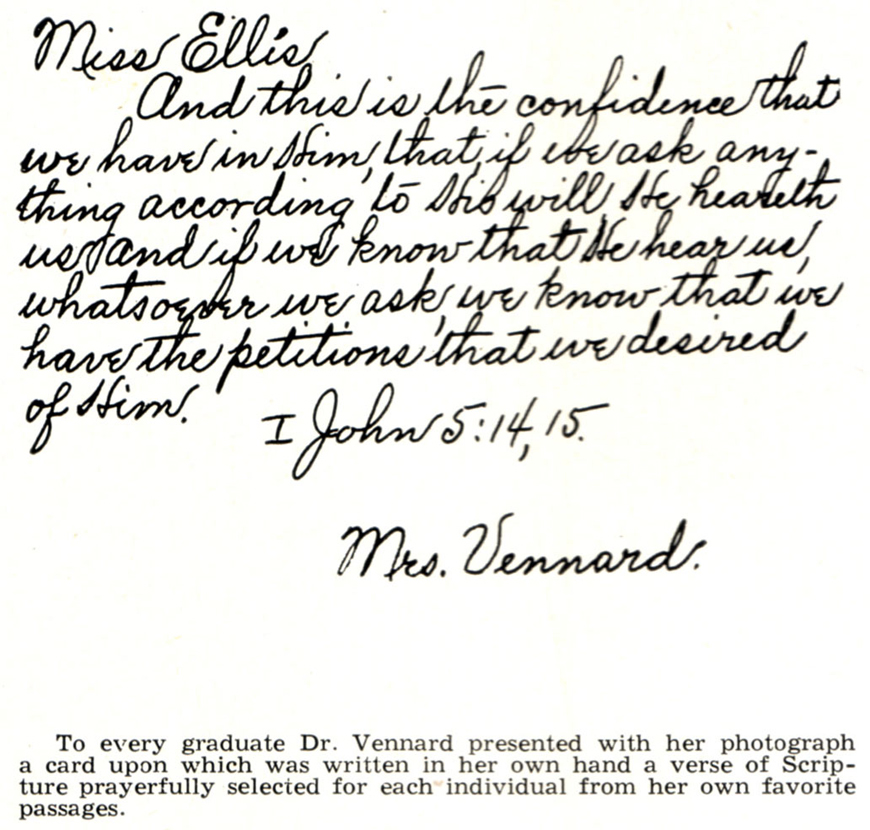 Miss Ellis
And this is the confidence that
we have in Him, that, if we ask any-
thing according to His will He heareth
us; and if we know that He hear us,
whatsoever we ask, we know that we
have the petitions that we desired
of Him.
I John 5:14, 15.
Mrs. Vennard.
To every graduate Dr. Vennard presented with her photograph
a card upon which was written in her own hand a verse of Scrip-
ture prayerfully selected for each individual from her own favorite
passages.